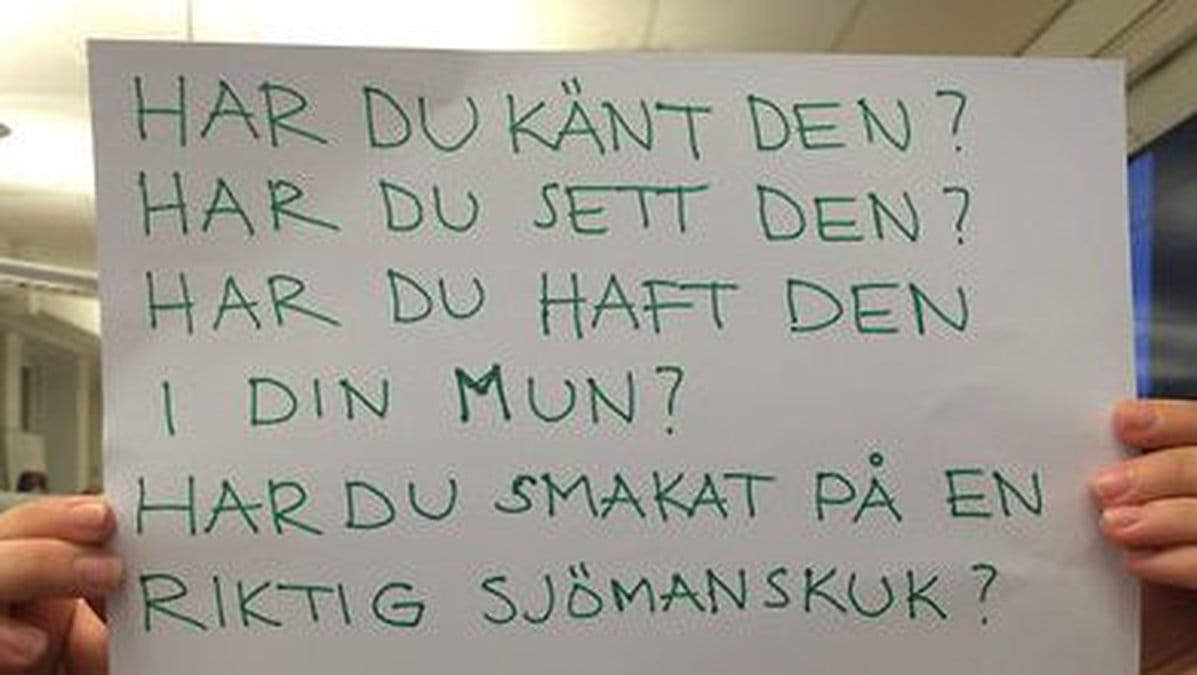 HAR DU KÄNT DEN?
HAR DU SETT DEN?
HAR DU HAFT DEN
I DIN MUN?
HAR DU SMAKAT PÅ EN
RIKTIG SJÖMANSKUK?